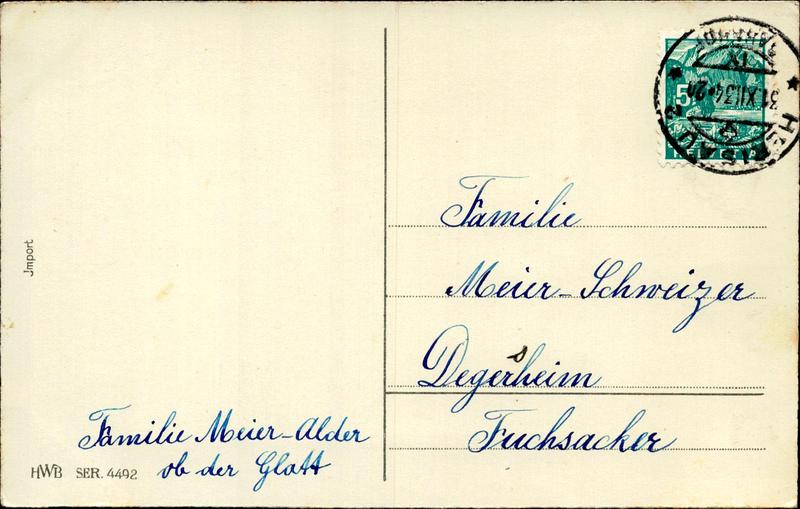 5
HELVETIA
HERISAU
31.XII.34-20
Jmport
Familie
Meier-Schweizer
Degersheim
Fuchsacker
Familie Meier-Alder
ob der Glatt
HWB SER. 4492